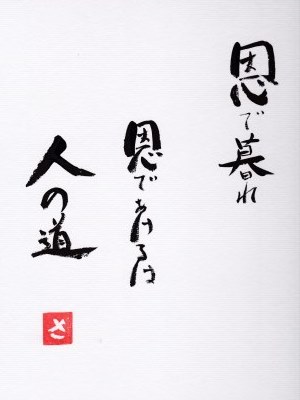 恩で暮れ
恩であけるは
人の道
さ